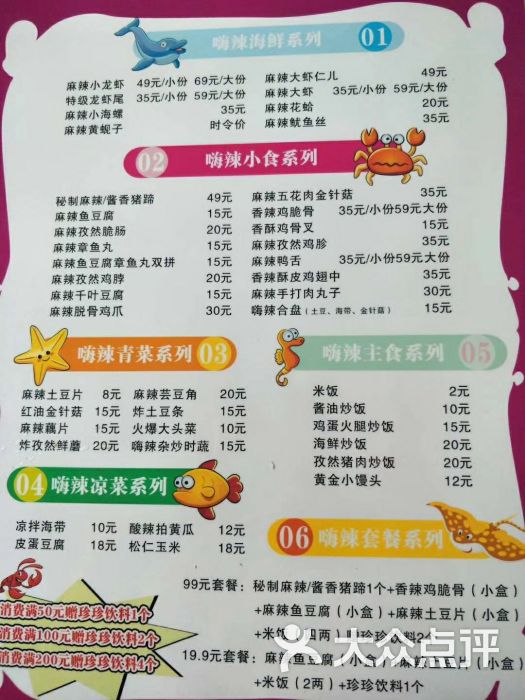 嗨辣海鲜系列 01
麻辣小龙虾 49元/小份 69元/大份
特级龙虾尾 35元/小份 59元/大份
麻辣小海螺 35元
麻辣黄蚬子 时令价
麻辣大虾仁儿 49元
麻辣大虾 35元/小份 59元/大份
麻辣花蛤 20元
麻辣鱿鱼丝 35元
02 嗨辣小食系列
秘制麻辣/酱香猪蹄 49元
麻辣鱼豆腐 15元
麻辣孜然脆肠 20元
麻辣章鱼丸 15元
麻辣鱼豆腐章鱼丸双拼 15元
麻辣孜然鸡脖 20元
麻辣千叶豆腐 15元
麻辣脱骨鸡爪 30元
麻辣五花肉金针菇 35元
香辣鸡脆骨 35元/小份59元/大份
香酥鸡骨叉 15元
麻辣孜然鸡胗 35元
麻辣鸭舌 35元/小份59元/大份
香辣酥皮鸡翅中 35元
麻辣手打肉丸子 30元
嗨辣合盘(土豆、海带、金针菇) 15元
嗨辣青菜系列 03
麻辣土豆片 8元 麻辣芸豆角 20元
红油金针菇 15元 炸土豆条 15元
麻辣藕片 15元 火爆大头菜 10元
炸孜然鲜蘑 20元 嗨辣杂炒时蔬 15元
04 嗨辣凉菜系列
凉拌海带 10元 酸辣拍黄瓜 12元
皮蛋豆腐 18元 松仁玉米 18元
嗨辣主食系列 05
米饭 2元
酱油炒饭 10元
鸡蛋火腿炒饭 15元
海鲜炒饭 20元
孜然猪肉炒饭 20元
黄金小馒头 12元
06 嗨辣套餐系列
99元套餐:秘制麻辣/酱香猪蹄1个+香辣鸡脆骨(小盒)
+麻辣鱼豆腐(小盒)+麻辣土豆片(小盒)
+米饭(四两)+珍珍饮料2个
19.9元套餐:麻辣鱼豆腐(小盒)+麻辣土豆片(小盒)
+米饭(2两)+珍珍饮料1个
消费满50元赠珍珍饮料1个
消费满100元赠珍珍饮料2个
消费满200元赠珍珍饮料4个
大众点评